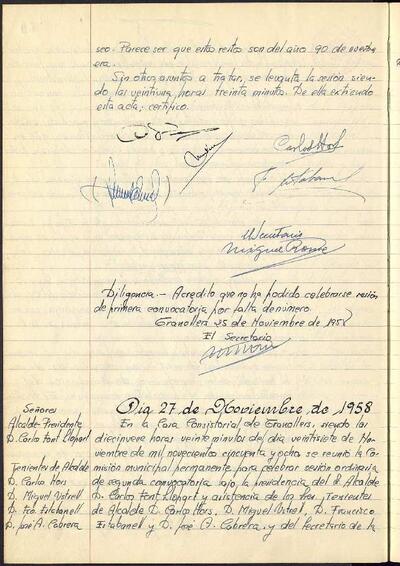 seo. Parece ser que estos restos son del año 90 de nuestra
era.
Sin otros asuntos a tratar, se levanta la sesión sien-
do las veintiuna horas treinta minutos. De ella extiendo
esta acta; certifico.
Carlos Hors
F. Estabanell
El Secretario
Miguel
Diligencia.- Acredito que no ha podido celebrarse sesión
de primera convocatoria por falta de número.
Granollers 25 de Noviembre de 1958
El Secretario
Señores
Alcalde Presidente
D. Carlos Font Llopart
Tenientes de Alcalde
D. Carlos Hors
D. Miguel Vetrell
D. Fco. Estabanell
D. José A. Cabrera
Día 27 de Noviembre, de 1958
En la Casa Consistorial de Granollers, siendo las
diecinueve horas veinte minutos del día veintisiete de No-
viembre de mil novecientos cincuenta y ocho, se reunió la Co-
misión municipal permanente para celebrar sesión ordinaria
de segunda convocatoria bajo la presidencia del Sr. Alcalde
D. Carlos Font Llopart y asistencia de los Sres. Tenientes
de Alcalde D. Carlos Hors, D. Miguel Vetrell, D. Francisco
Estabanell y D. José A. Cabrera, y del Secretario de la